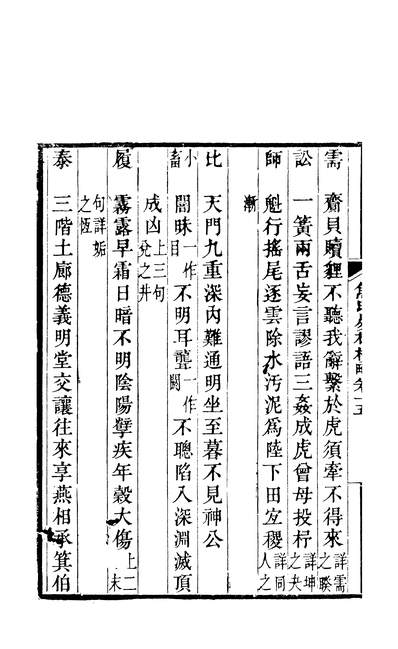 需 齋貝贖貍不聽我辭繫於虎須牽不得來詳需之睽
訟 一簧兩舌妄言謬語三姦成虎曾母投杼詳坤之夬
師 魁行搖尾逐雲除水汚泥爲陸下田宜稷詳同人之
漸
比 天門九重深內難通明坐至暮不見神公
小畜 闇昧一作目不明耳聾一作闕不聰陷入深淵滅頂
成凶上三句兌之井
履 霧露早霜日暗不明陰陽孽疾年穀大傷上二末
句詳姤之恆
泰 三階土廊德義明堂交讓往來享燕相承箕伯